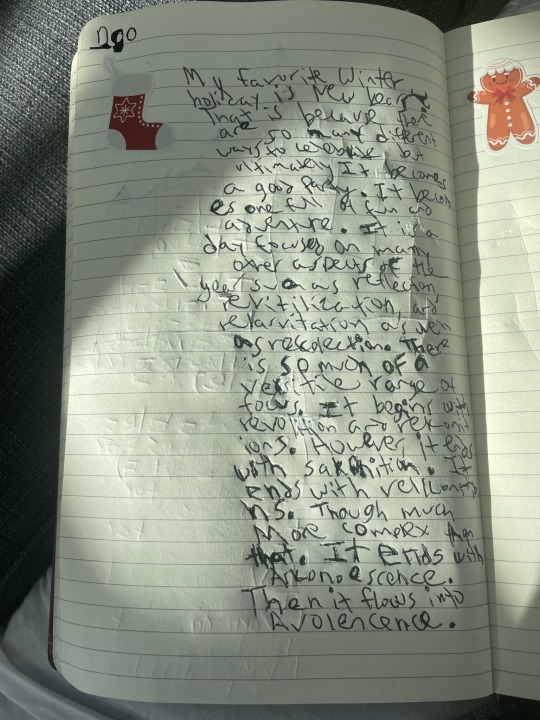 Dgo
My favorite Winter
holiday is New Years
That is because there
are so many different
ways to celebrate but
ultimately It becomes
a good Party. It becom
es one full of fun and
adventure. It is a
day focused on many
over aspects of the
year such as reflection
revitilization, and
as rescolection. There
is so much of a
versitile range of
focus. It begins with
However, it ends
with It
ends with
ns. Though much
More complex than
that. It Ends with
Then it flows into
Avolencence.